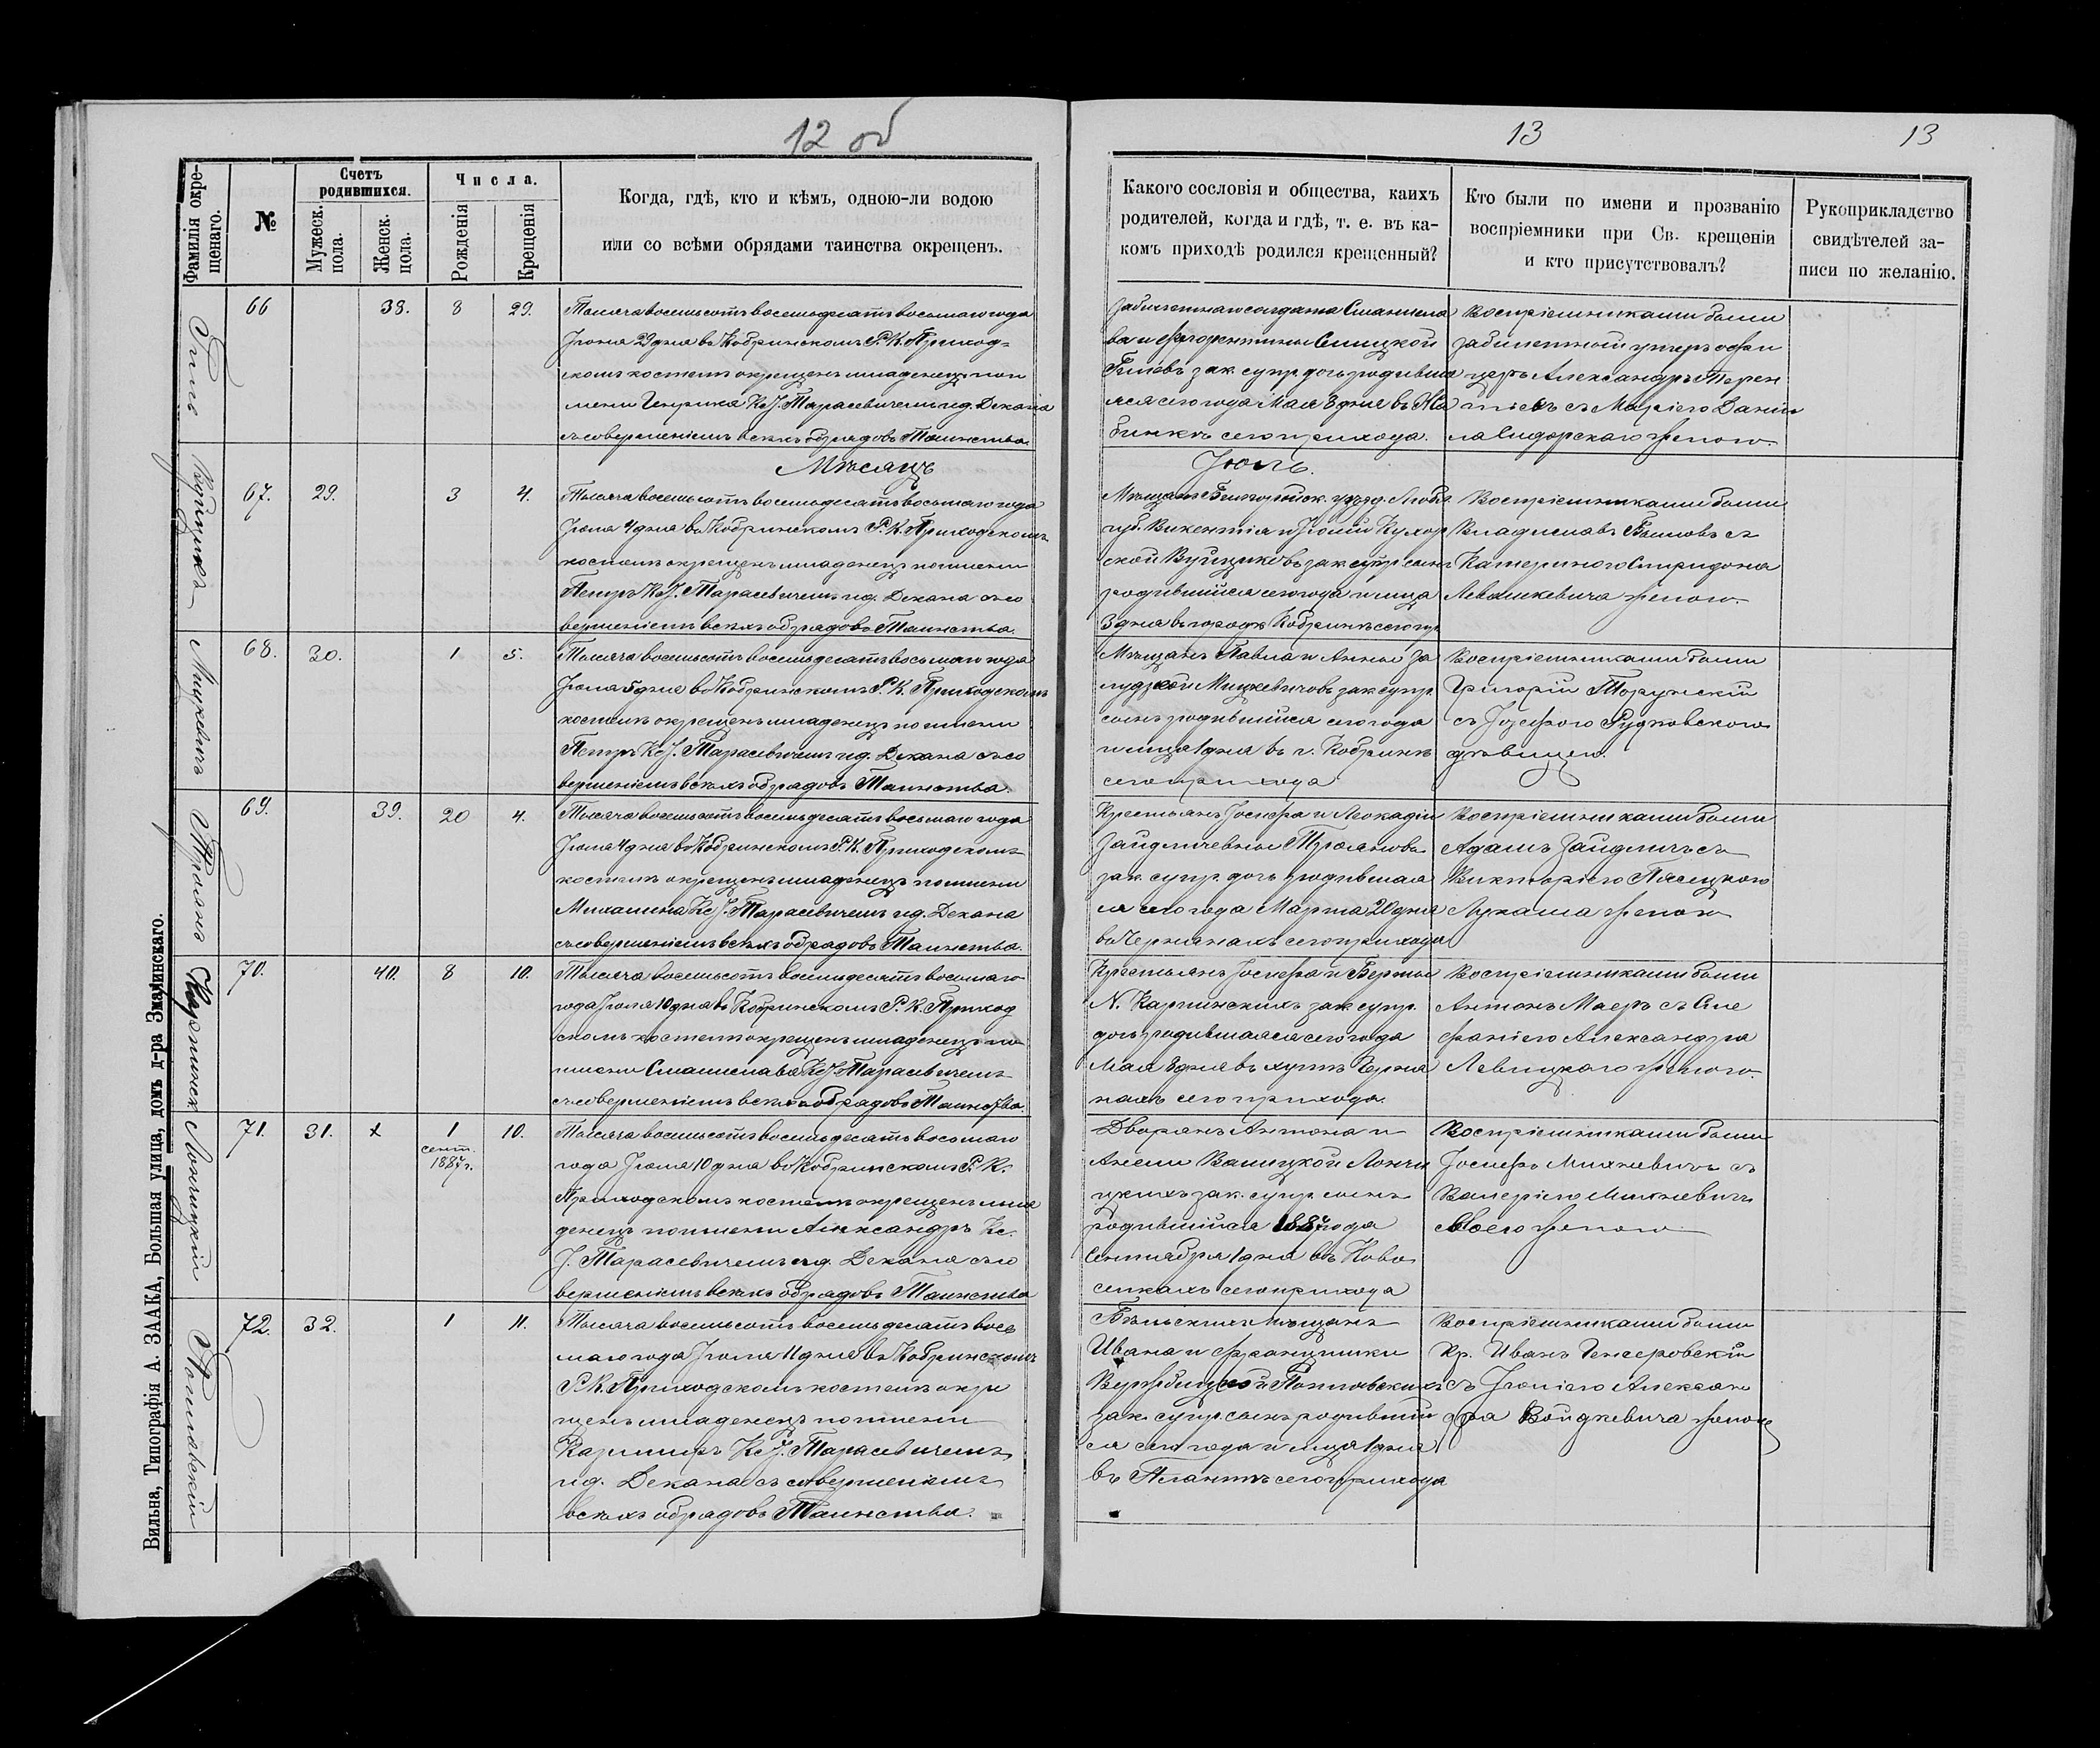 12 об
13
13
Фамилія окрещенаго.
№
Счетъ родившихся.
Мужеск. пола.
Женск. пола.
Числа.
Рожденія
Крещенія
Когда, гдѣ, кто и кѣмъ, одною-ли водою
или со всѣми обрядами таинства окрещенъ.
Какого сословія и общества, каихъ
родителей, когда и гдѣ, т. е. въ ка-
комъ приходѣ родился крещенный?
Кто были по имени и прозванію
воспріемники при Св. крещеніи
и кто присутствовалъ?
Рукоприкладство
свидѣтелей за-
писи по желанію.
66 38. 8 29.
Тысяча восемьсотъ восемьдесятъ восьмаго года
Іюня 29 дня въ Кобринскомъ Р. К. Приход-
скомъ костелѣ окрещенъ младенецъ по и
мени Генрика Кс. І. Тарасевичемъ и д. Декана
съ совершеніемъ всѣхъ обрядовъ Таинства.
Забилетнаго солдата Станисла
ва и Флорентины Синицкой
зак. супр. дочь родивша
яся сего года Мая 8 дня въ
сего прихода.
Воспріемниками были
забилетный унтеръ офи
церъ Александръ
съ Маріею Дани
ла Сидорскаго женою.
Мѣсяцъ
Іюль.
Войцикъ
67. 29. 3 4.
Тысяча восемьсотъ восемьдесятъ восьмаго года
Іюля 4 дня въ Кобринскомъ Р. К. Приходскомъ
костелѣ окрещенъ младенецъ по имени
Петръ Кс. І. Тарасевичемъ и д. Декана съ со
вершеніемъ всѣхъ обрядовъ Таинства.
Мѣщанъ
губ. Викентія и Юліи
зак. супр. сынъ
родившійся сего года и м-ца
3 дня въ городѣ Кобринѣ сего пр
Воспріемниками были
Владиславъ съ
Катериною Спиридона
Левашкевича женою.
Мицкевичъ
68. 30. 1 5.
Тысяча восемьсотъ восемьдесятъ восьмаго года
Іюля 5 дня въ Кобринскомъ Р. К. Приходскомъ
костелѣ окрещенъ младенецъ по имени
Петръ Кс. І. Тарасевичемъ и д. Декана съ со
вершеніемъ всѣхъ обрядовъ Таинства.
Мѣщанъ Павла и Анны За
Мицкевичовъ зак. супр.
сынъ родившійся сего года
и м-ца 1 дня въ г. Кобринѣ
сего прихода
Воспріемниками были
Григорій Торунскій
съ Іозефою Рудковскою
дѣвицею.
Троянъ
69. 39. 20 4.
Тысяча восемьсотъ восемьдесятъ восьмаго года
Іюля 4 дня въ Кобринскомъ Р. К. Приходскомъ
костелѣ окрещенъ младенецъ по имени
Михалина Кс. І. Тарасевичемъ и д. Декана
съ совершеніемъ всѣхъ обрядовъ Таинства.
Крестьянъ Іосифа и Леокадіи
Зайдличевны Трояновъ
зак. супр. дочь родившая
ся сего года Марта 20 дня
въ Чернянахъ сего прихода
Воспріемниками были
Адамъ Зайдличъ съ
Викторіею Пясецкого
Лукаша женою
Карпинск
70. 40. 8 10.
Тысяча восемьсотъ восемьдесятъ восьмаго
года Іюля 10 дня въ Кобринскомъ Р. К. Приход
скомъ костелѣ окрещенъ младенецъ по
имени Станислава Кс. І. Тарасевичемъ
съ совершеніемъ всѣхъ обрядовъ Таинства.
Крестьянъ Іосифа и Берты
N. Карпинскихъ зак. супр.
дочь родившаяся сего года
Мая 8 дня въ Черня
нахъ сего прихода.
Воспріемниками были
Антонъ Маеръ съ Сте
фаніею Александра
Левицкаго женою.
Лончицкій
71. 31. x 1 сент. 1887 г. 10.
Тысяча восемьсотъ восемьдесятъ восьмаго
года Іюля 10 дня въ Кобринскомъ Р. К.
Приходскомъ костелѣ окрещенъ мла
денецъ по имени Александръ Кс.
І. Тарасевичемъ и д. Декана съ со
вершеніемъ всѣхъ обрядовъ Таинства
Дворянъ Антона и
Анели Валицкой Лончи
цкихъ зак. супр. сынъ
родившійся 1887 года
Сентября 1 дня въ Ново
селкахъ сего прихода
Воспріемниками были
Іосифъ Михневичъ съ
Валеріею Михневичъ
своею женою
72. 32. 1 11.
Тысяча восемьсотъ восемьдесятъ вось
маго года Іюля 11 дня въ Кобринскомъ
Р. К. Приходскомъ костелѣ окре
щенъ младенецъ по имени
Казимиръ Кс. І. Тарасевичемъ
и д. Декана съ совершеніемъ
всѣхъ обрядовъ Таинства.
Бѣльскихъ Мѣщанъ
Ивана и Францишки
Вержбицкой
зак. супр. сынъ родившій
ся сего года и м-ца 1 дня
въ сего прихода
Воспріемниками были
Кр. Иванъ
съ Юліею Алексан
дра Войдкевича женою
Вильна, Типографія А. ЗААКА, Большая улица, домъ д-ра Змачинскаго.